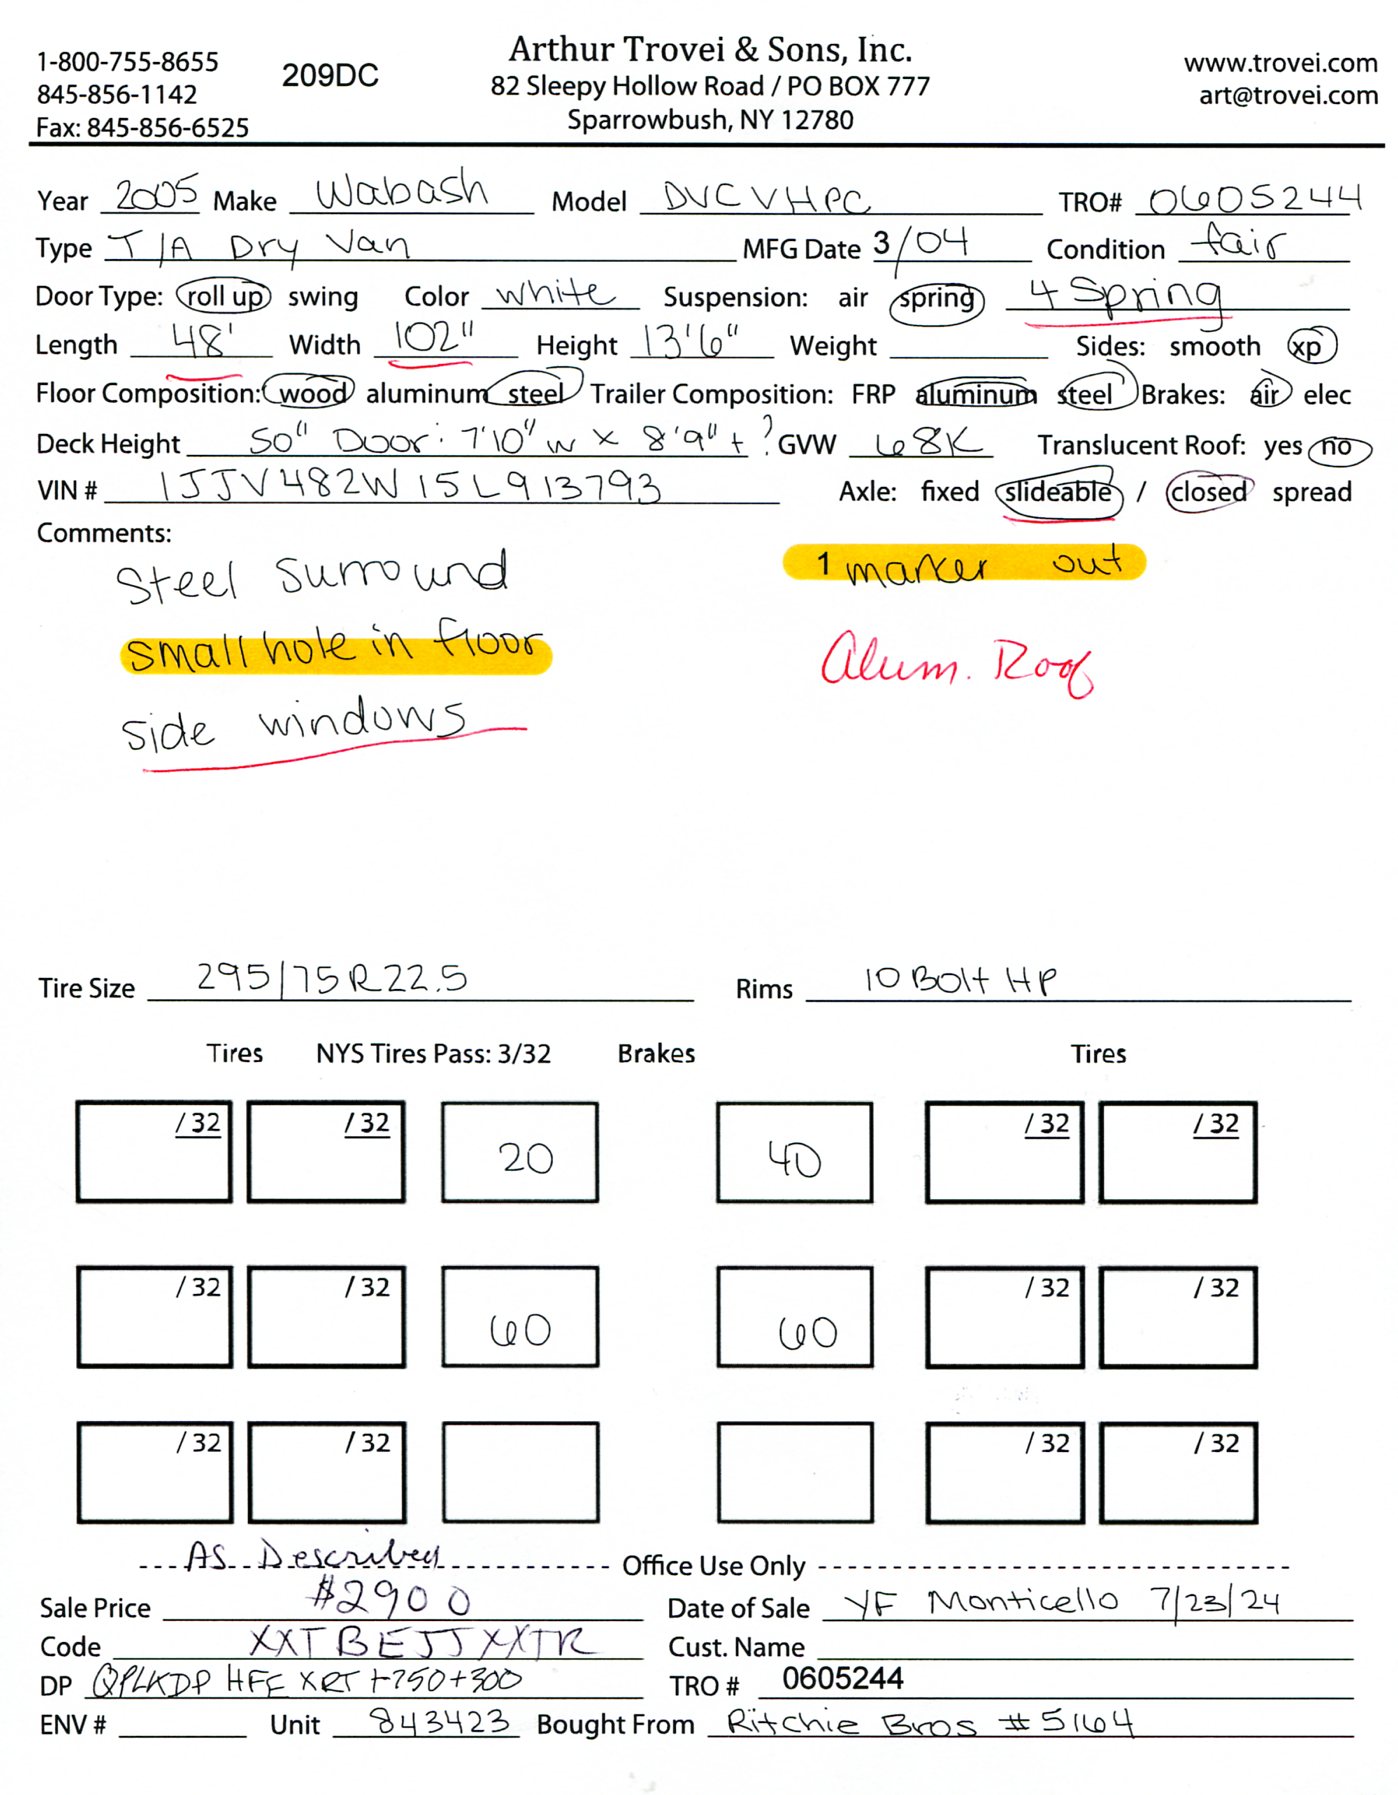 1-800-755-8655
845-856-1142
Fax: 845-856-6525
209DC
Arthur Trovei & Sons, Inc.
82 Sleepy Hollow Road / PO BOX 777
Sparrowbush, NY 12780
www.trovei.com
art@trovei.com
Year 2005 Make Wabash Model DVCVHPC TRO# 0605244
Type T/A Dry Van MFG Date 3/04 Condition fair
Door Type: roll up swing Color white Suspension: air spring 4 Spring
Length 48' Width 102" Height 13'6" Weight Sides: smooth xp
Floor Composition: wood aluminum steel Trailer Composition: FRP aluminum steel Brakes: air elec
Deck Height 50" Door: 7'10" w x 8'9" t ? GVW 68K Translucent Roof: yes no
VIN # 1JJV482W15L913793 Axle: fixed slideable / closed spread
Comments:
Steel surround 1 marker out
small hole in floor Alum. Roof
side windows
Tire Size 295/75R22.5 Rims 10 Bolt HP
Tires NYS Tires Pass: 3/32 Brakes Tires
/32 /32 20 40 /32 /32
/32 /32 60 60 /32 /32
/32 /32 /32 /32
As Described Office Use Only
Sale Price #2900 Date of Sale YF Monticello 7/23/24
Code XXTBEJJXXTR Cust. Name
DP QPLKDP HFE XRT +750+300 TRO # 0605244
ENV # Unit 843423 Bought From Ritchie Bros #5164